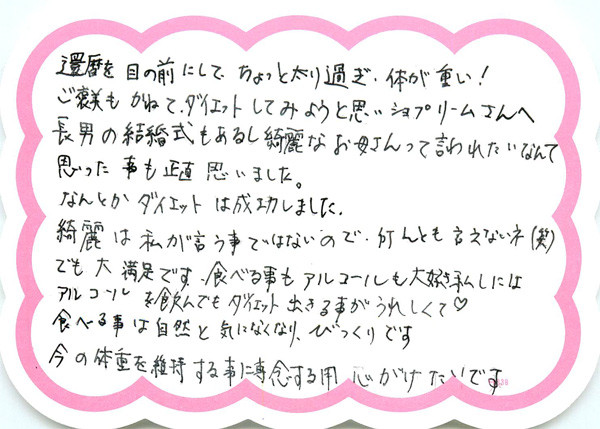 還暦を目の前にして、ちょっと太り過ぎ、体が重い!
ご褒美もかねて、ダイエットしてみようと思いショプリームさんへ
長男の結婚式もあるし綺麗なお母さんって言われたいなんて
思った事も正直思いました。
なんとかダイエットは成功しました。
綺麗は私が言う事ではないので、何んとも言えないネ(笑)
でも大満足です、食べる事もアルコールも大好き私しには
アルコールを飲んでもダイエット出きる事がうれしくて♡
食べる事は自然と気になくなり、びっくりです
今の体重を維持する事に専念する用心がけたいです